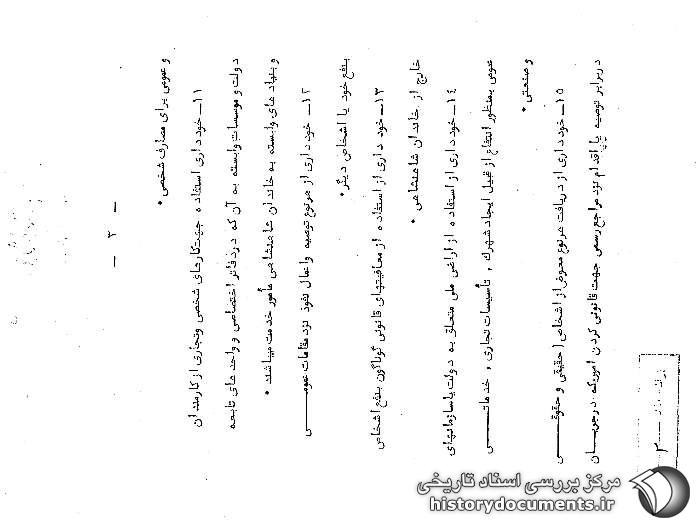 - ۳ -
و عمومی برای مصارف شخصی .
۱۱- خود داری استفاده جهت کارهای شخصی و تجاری از کارمندان
دولت و موسسات وابسته به آن که در دفاتر اختصاصی و واحدهای تابعه
و بنیاد های وابسته به خاندان شاهنشاهی مأمور خدمت میباشند .
۱۲- خود داری از هر نوع توصیه و اعمال نفوذ نزد مقامات عمومی
بنفع خود یا اشخاص دیگر .
۱۳- خود داری از استفاده از معافیتهای قانونی گوناگون بنفع اشخاص
خارج از خاندان شاهنشاهی .
۱۴- خود داری از استفاده از اراضی ملی متعلق به دولت یا سازمانهای
عمومی بمنظور انتفاع از قبیل ایجاد شهرک , تأسیسات تجاری , خدماتی
و صنعتی .
۱۵- خود داری از دریافت هر نوع معوض از اشخاص ( حقیقی و حقوقی
در برابر توصیه یا اقدام نزد مراجع رسمی جهت قانونی کردن امور که در جریان
مرکز بررسی اسناد تاریخی
historydocuments.ir